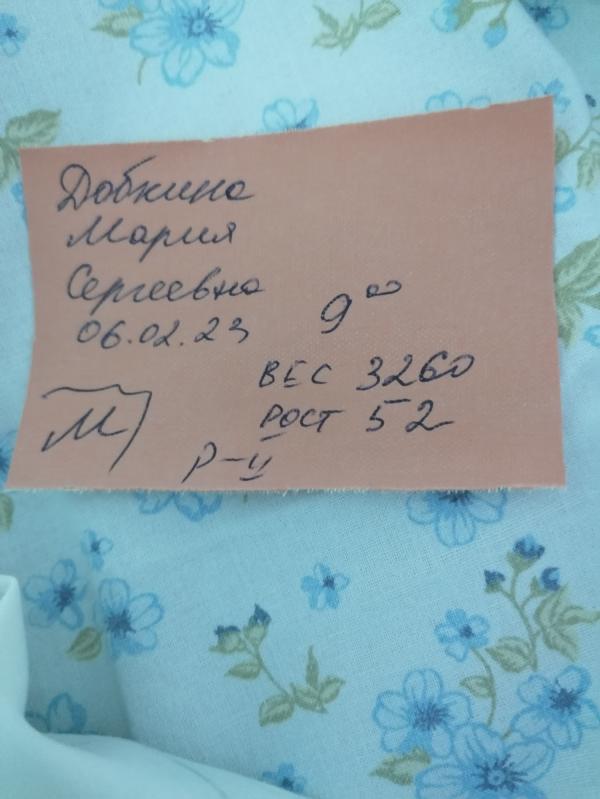 Добкина
Мария
Сергеевна
06.02.23
9⁰⁰
ВЕС 3260
РОСТ 52
М
Р-II